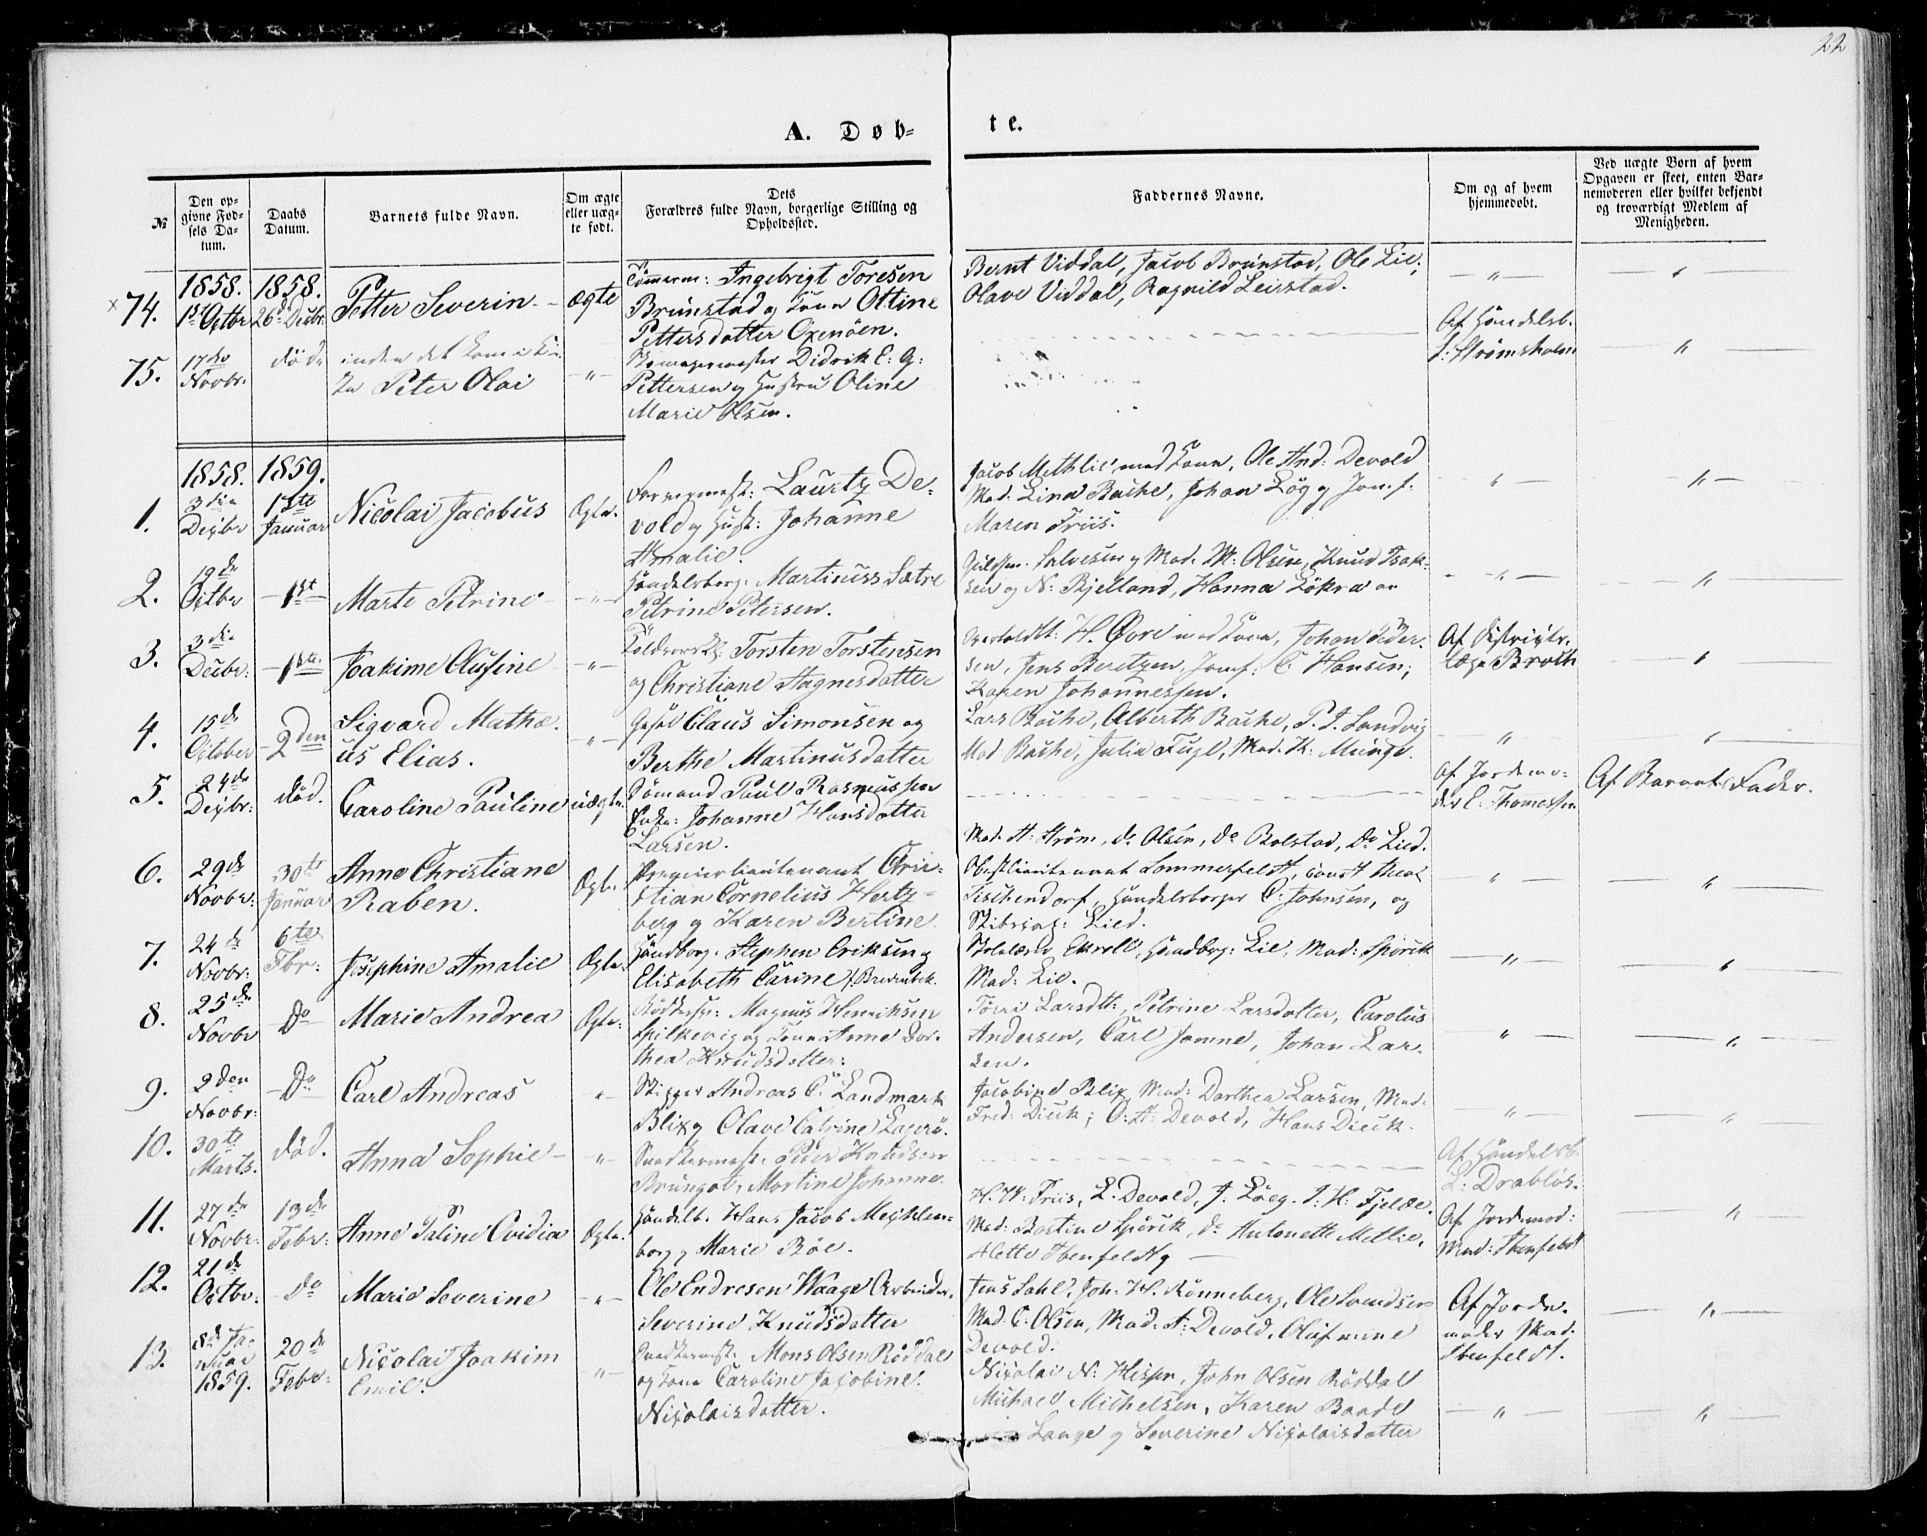 22
A. Døb-
te.
№
Den op-
givne Fød-
sels Da-
tum.
Daabs
Datum.
Barnets fulde Navn.
Om ægte
eller uæg-
te født.
Dets
Forældres fulde Navn, borgerlige Stilling og
Opholdssted.
Faddernes Navne.
Om og af hvem
hjemmedøbt.
Ved uægte Børn af hvem
Opgaven er skeet, enten Bar-
nemoderen eller hvilket bekjendt
og troværdigt Medlem af
Menigheden.
× 74.
1858.
1ste Octbr
1858.
26de Decbr.
Petter Severin
Ægte
Tømmerm: Ingebrigt Toresen
Brunstad og Kone Oltine
Pettersdatter Oxenöen.
Bernt Viddal, Jacob Brunstad, Ole Lie,
Olave Viddal, Ragnild Leirstad.
75.
17de
Novbr.
död
inden det kom i Kir-
ken Peter Olai
Didrik E. G:
Pettersen og Hustru Oline
Marie Olsen.
Af Handelsb.
Strømsholm
1858.
1859.
1.
3die
Decbr
1ste
Januar
Nicolai Jacobus
Ægte.
Lauritz De-
vold og Hust: Johanne
Amalie.
Jacob Methlie med Kone, Ole And: Devold
Mad: Lina Bache, Johan Løg og Jomf:
Maren Friis.
2.
19de
Octbr
1ste
Marte Petrine
Handelsborg: Martinuss Sætre
Petrine Petersen.
Guldsm. Salvesen og Mad. M: Olsen, Knud Isak-
sen og N: Bjelland, Hanna Løkra
3.
3die
Decbr:
1ste
Joakime Olufine
Torsten Torstensen
og Christiane Magnesdatter
H. Øvre med Kone, Johan Peder-
sen, Jens Beretzen, Jomf: C Hansen,
Karen Johannessen.
Af Districts-
læge Broth
4.
15de
October
2den
Sigvard Mathæ-
us Elias.
Claus Simonsen og
Berthe Martinusdatter
Lars Bache, Alberth Bache, P. I. Sandvig
Mad Bache, Julia Fugl, Mad. K: Munge.
5.
24de
Decbr:
död.
Caroline Pauline
uægte
Sömand Paul Rasmussen
Enke: Johanne Hansdatter
Larsen.
Af Jordemo-
der E. Thomassen
Af Barnets Fader.
6.
29de
Novbr:
30te
Januar
Anne Christiane
Raben.
Ægte.
Premierlieutenant Chris-
tian Cornelius Hertz-
berg og Karen Bertine
Mad. A: Strøm, do Olsen, do Bolstad, do Lied.
Oberstlieutenant Sommerfeldt, Theol
Tischendorf, Handelsborger C: Johnsen, og
Lied.
7.
24de
Novbr:
6te
Fbr:
Josephine Amalie
Ægte.
Handborg. Stephen Eriksen og
Elisabeth Carine f. Bredenbek.
Skolelærer Ekrell, Handborg: Lie, Mad: Spörck
Mad: Lie.
8.
25de
Novbr
Do
Marie Andrea
Ægte.
Magnus Henriksen
Spilkevig og Kone Anne Dor-
thea Knudsdatter.
Törri Larsdtt:, Petrine Larsdatter, Carolus
Andersen, Carl Jamne, Johan Lar-
sen.
9.
2den
Novbr:
Do
Carl Andreas
Skipper Andreas C. Landmark
Blix og Olave Catrine Lagerö.
Jacobine Blix, Mad: Dorthea Larsen, Mad.
Fred: Dieck, O: A: Devold, Hans Dieck.
10.
30te
Marts.
död.
Anna Sophie
Snedkermest. Peter Knudsen
Brungot, Martine Johanne.
Af Handelsb.
L. Drabløs.
11.
27de
Novbr:
13de
Febr:
Anne Paline Ovidia
Ægte.
Handelb. Hans Jacob Mechlen-
borg og Marie Röe.
H. M. Friis, L. Devold, J. Löeg. J. H. Fjelde.
Mad: Bastine Spörck, do Antonette Metlie,
Mette Ibenfeldt og
Af Jordemod:
Mad: Ibenfeldt
12.
21de
Octbr:
Do
Marie Severine
Ole Endresen Waage Arbeider,
Severine Knudsdatter
Jens Dahl, Joh. H. Rönneberg, Ole Svendsen
Mad. C. Olsen, Mad. A: Devold, Olufmine
Devold.
Af Jorde-
moder Mad.
Ibenfeldt.
13.
8de Ja-
nuar
1859.
20de
Febr:
Nicolai Joakim
Emil.
Snedkermest: Mons Olsen Röddal
og Kone Caroline Jacobine
Nicolaisdatter.
Nicolai N: Hessen, John Olsen Röddal
Michael Michelsen, Karen Baade
Lange og Severine Nicolaisdatter